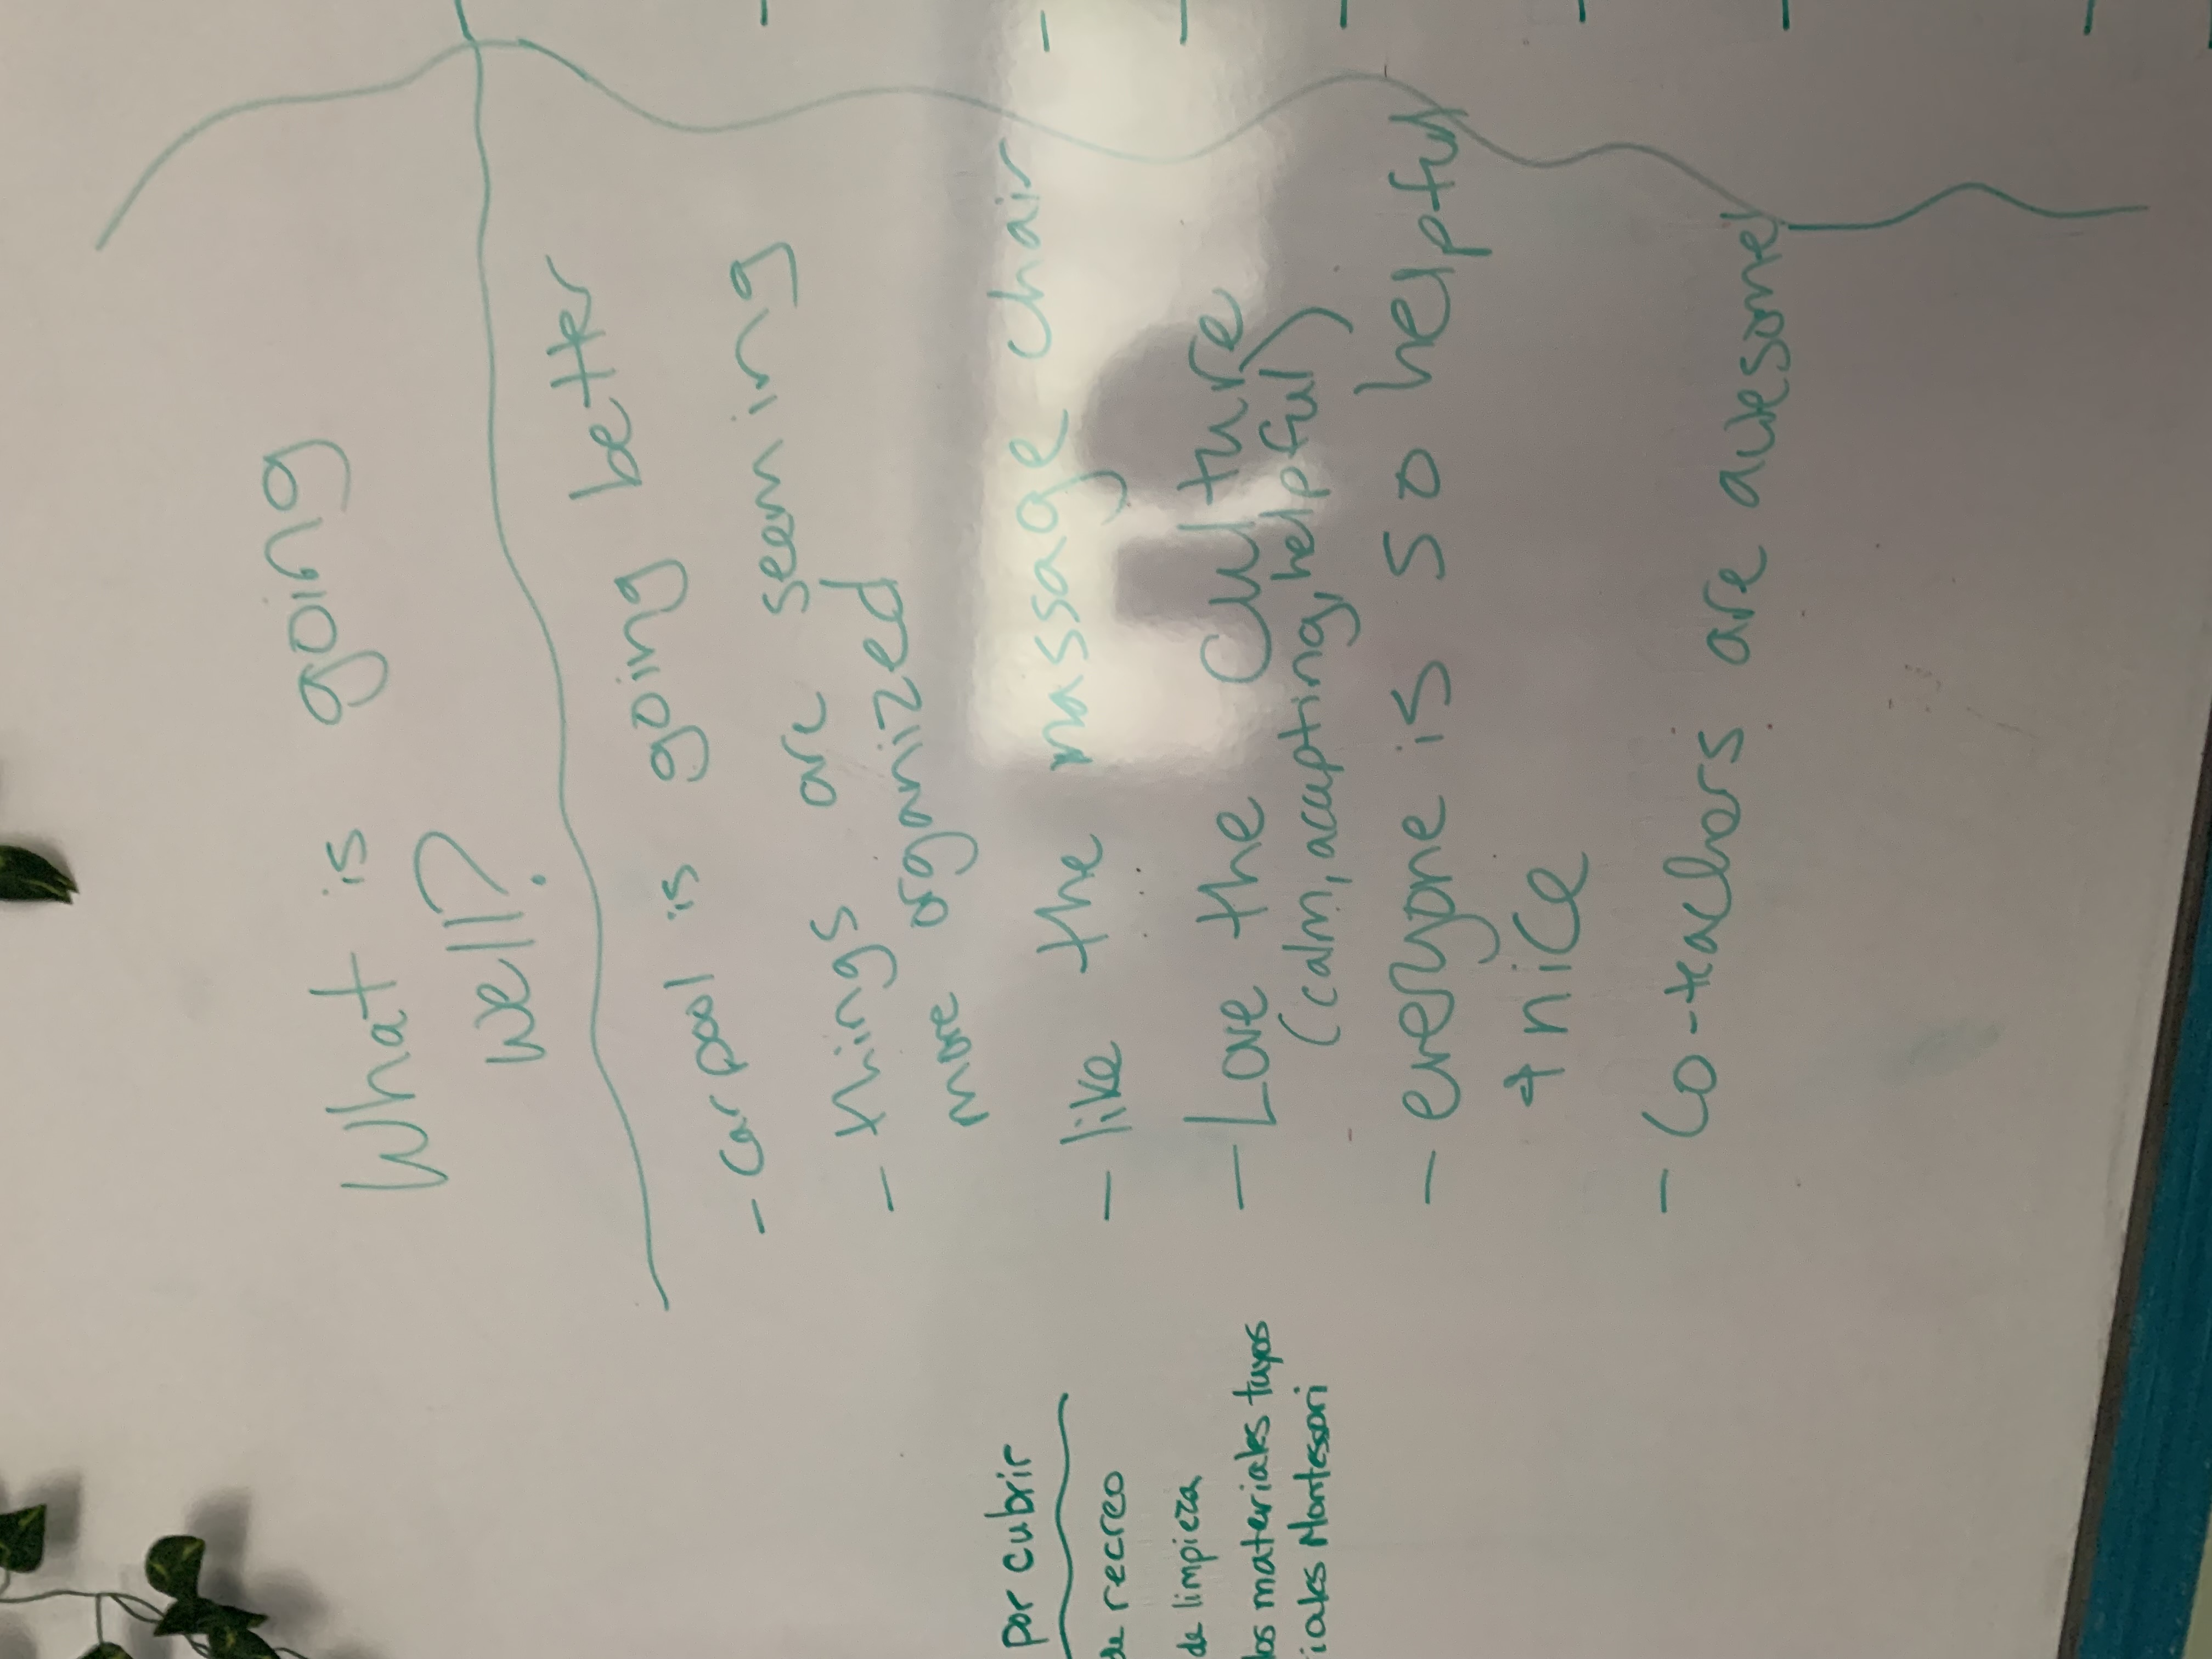 What is going
well?
- car pool is going better
- things are seeming
more organized
- like the massage chair
- Love the culture
(calm, accepting, helpful)
- everyone is so helpful
+ nice
- Co-teachers are awesome!
por cubrir
de recreo
de limpieza
los materiales tuyos
iales Montessori